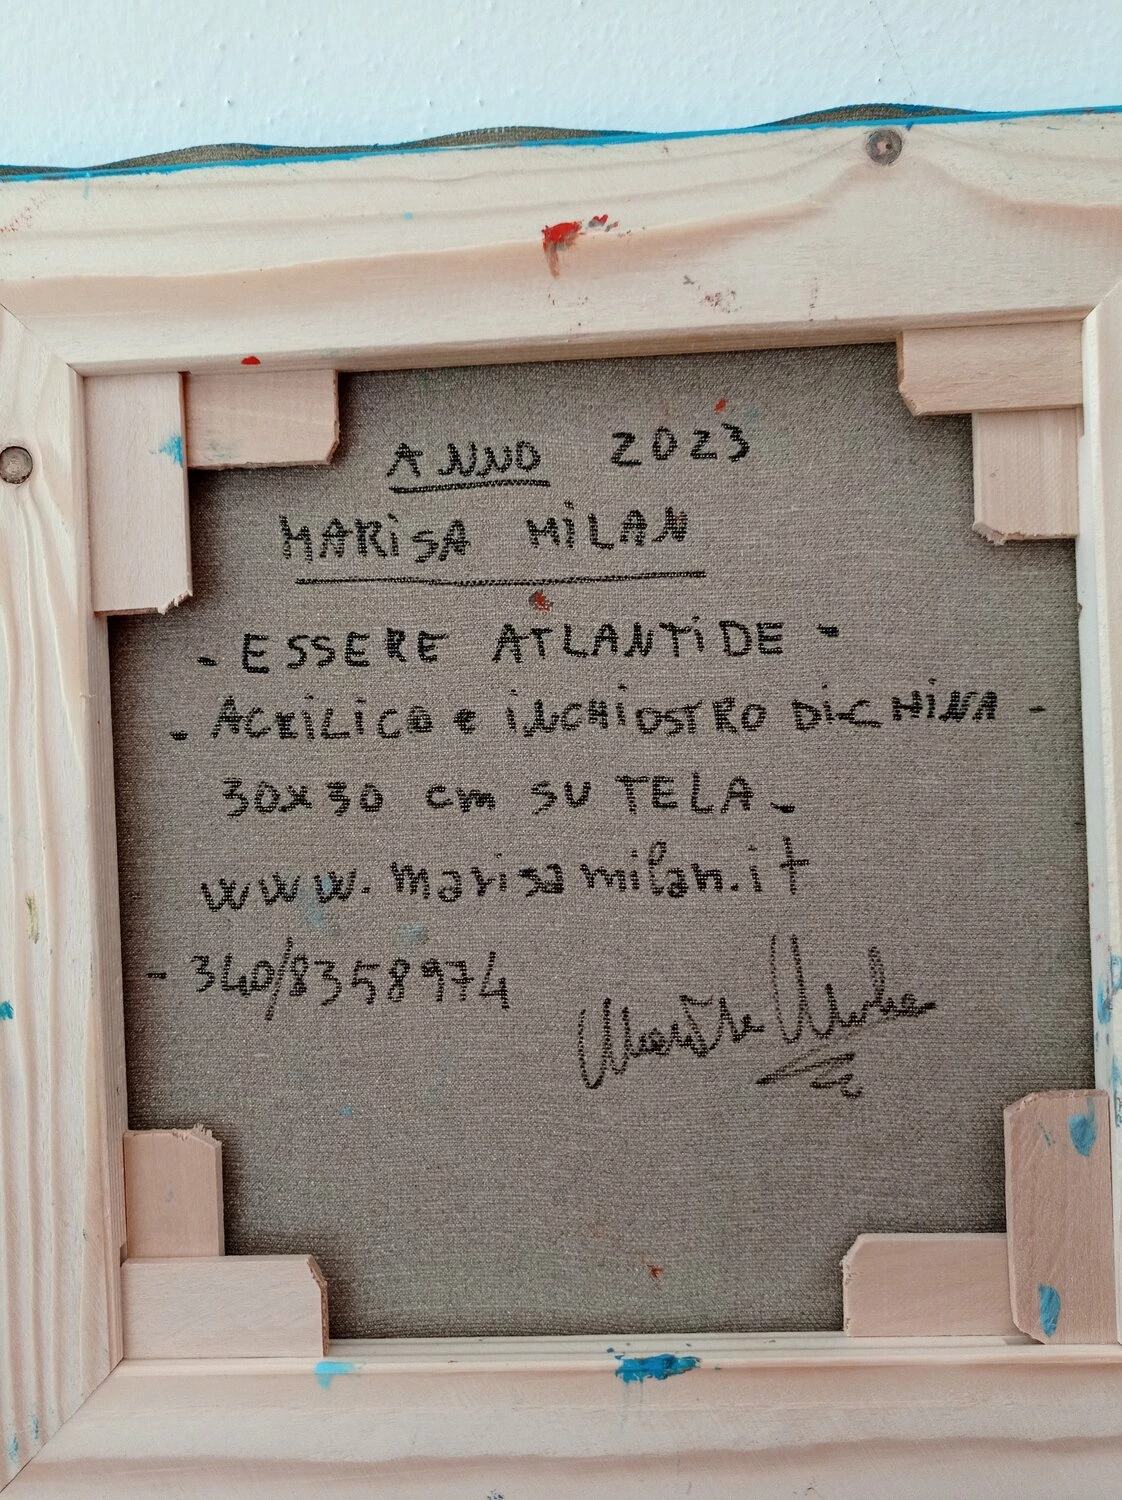 ANNO 2023
MARiSA MiLAN
- ESSERE ATLANTiDE -
- ACRiLiCO e iNCHiOSTRO Di CHiNA -
30x30 cm SU TELA -
www.marisamilan.it
- 340/8358974